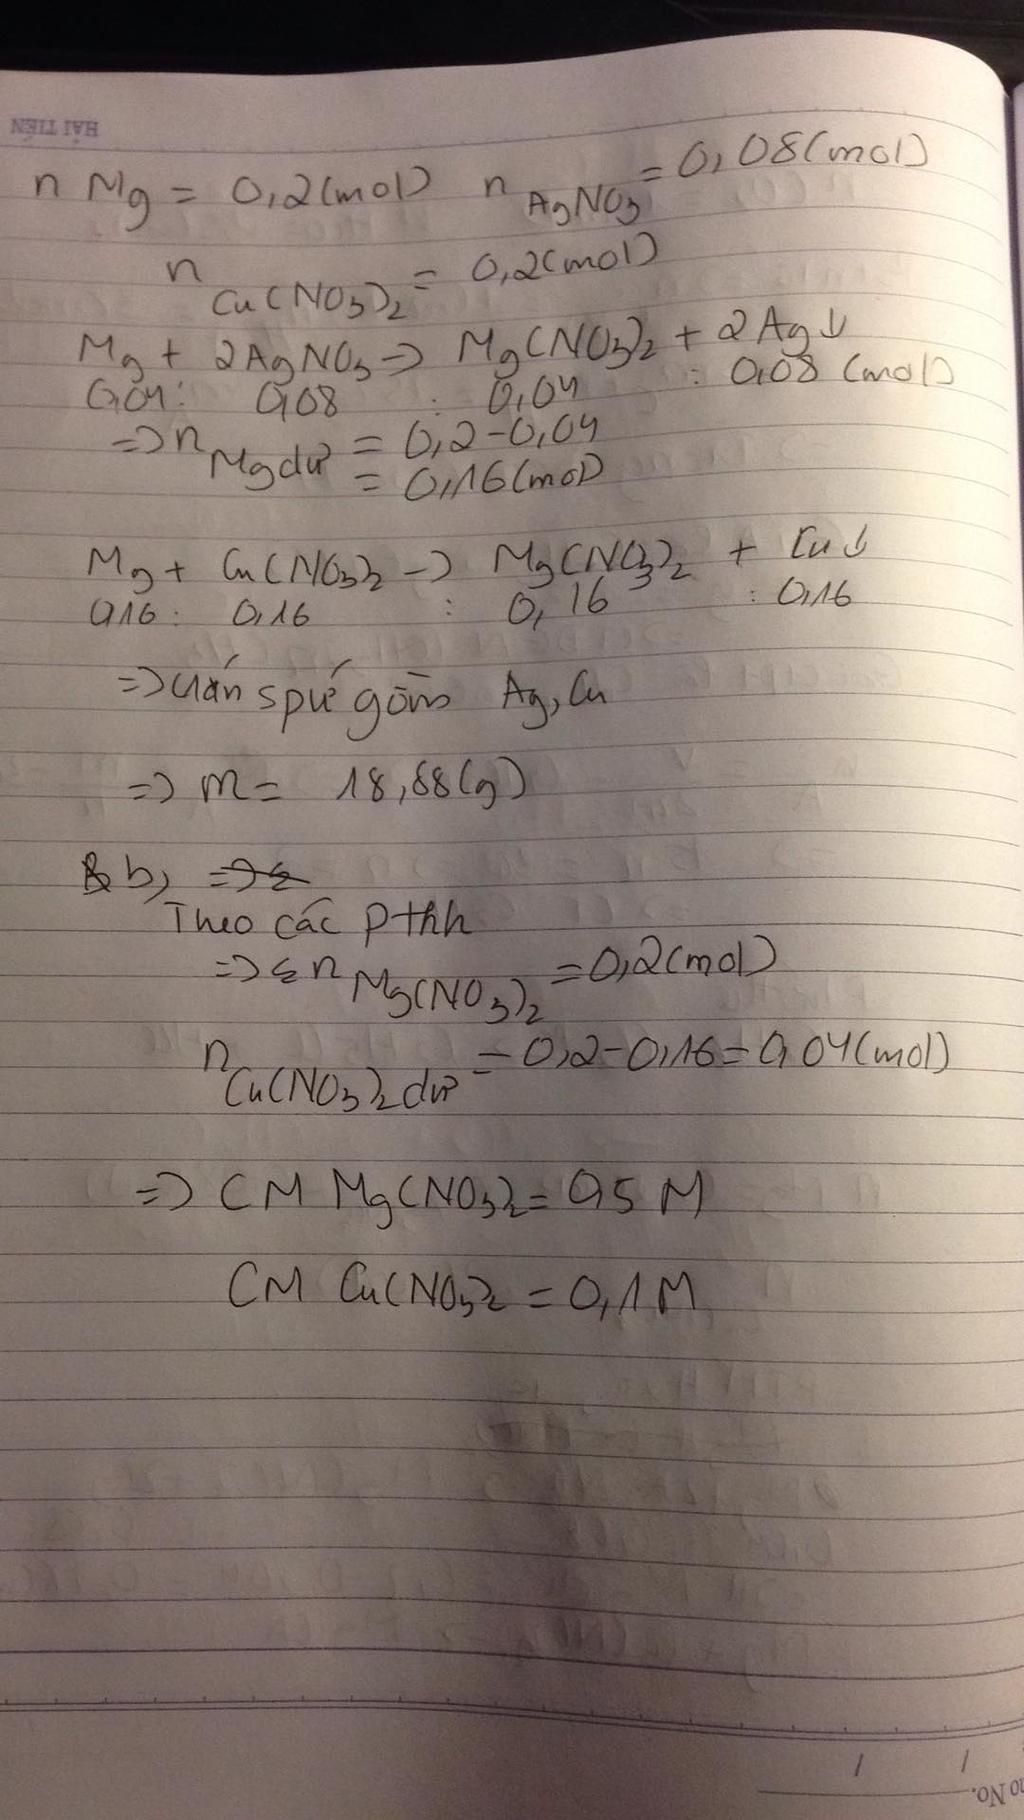 HẢI TIẾN
n Mg = 0,2(mol) n AgNO3 = 0,08(mol)
n Cu(NO3)2 = 0,2(mol)
Mg + 2AgNO3 => Mg(NO3)2 + 2Ag↓
0,04 : 0,08 : 0,04 : 0,08 (mol)
=> n Mg dư = 0,2-0,04
= 0,16(mol)
Mg + Cu(NO3)2 -> Mg(NO3)2 + Cu↓
0,16 : 0,16 : 0,16 : 0,16
=> rắn spứ gồm Ag, Cu
=> m = 18,88(g)
b, =>Σ
Theo các pthh
=> Σ n Mg(NO3)2 = 0,2(mol)
n Cu(NO3)2 dư = 0,2-0,16=0,04(mol)
=> CM Mg(NO3)2 = 0,5 M
CM Cu(NO3)2 = 0,1M
No.